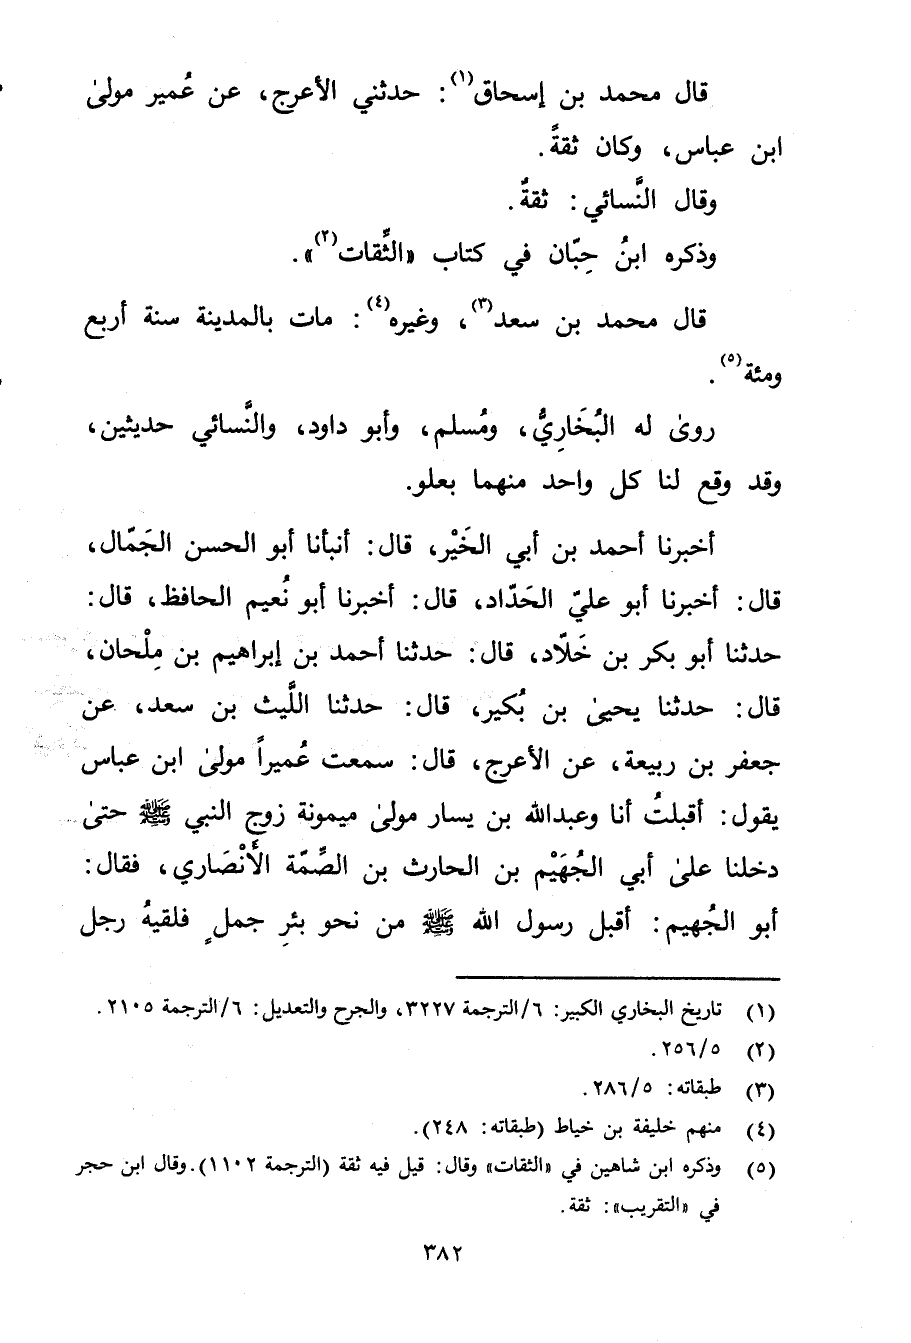 قال محمد بن إسحاق(١): حدثني الأعرج، عن عُمير مولىٰ
ابن عباس، وكان ثقةً.
وقال النَّسائي: ثقةٌ.
وذكره ابنُ حِبّان في كتاب «الثِّقات(٢)».
قال محمد بن سعد(٣)، وغيره(٤): مات بالمدينة سنة أربع
ومئة(٥).
روىٰ له البُخَارِيُّ، ومُسلم، وأبو داود، والنَّسائي حديثين،
وقد وقع لنا كل واحد منهما بعلو.
أخبرنا أحمد بن أبي الخَيْر، قال: أنبأنا أبو الحسن الجَمّال،
قال: أخبرنا أبو عليّ الحَدّاد، قال: أخبرنا أبو نُعيم الحافظ، قال:
حدثنا أبو بكر بن خَلّاد، قال: حدثنا أحمد بن إبراهيم بن مِلْحان،
قال: حدثنا يحيىٰ بن بُكير، قال: حدثنا اللَّيث بن سعد، عن
جعفر بن ربيعة، عن الأعرج، قال: سمعت عُميراً مولىٰ ابن عباس
يقول: أقبلتُ أنا وعبدالله بن يسار مولىٰ ميمونة زوج النبي ﷺ حتىٰ
دخلنا علىٰ أبي الجُهَيْم بن الحارث بن الصِّمّة الأَنْصَاري، فقال:
أبو الجُهيم: أقبل رسول الله ﷺ من نحو بئرِ جملٍ فلقيهُ رجل
(١) تاريخ البخاري الكبير: ٦/الترجمة ٣٢٢٧، والجرح والتعديل: ٦/الترجمة ٢١٠٥.
(٢) ٢٥٦/٥.
(٣) طبقاته: ٢٨٦/٥.
(٤) منهم خليفة بن خياط (طبقاته: ٢٤٨).
(٥) وذكره ابن شاهين في «الثقات» وقال: قيل فيه ثقة (الترجمة ١١٠٢). وقال ابن حجر
في «التقريب»: ثقة.
٣٨٢